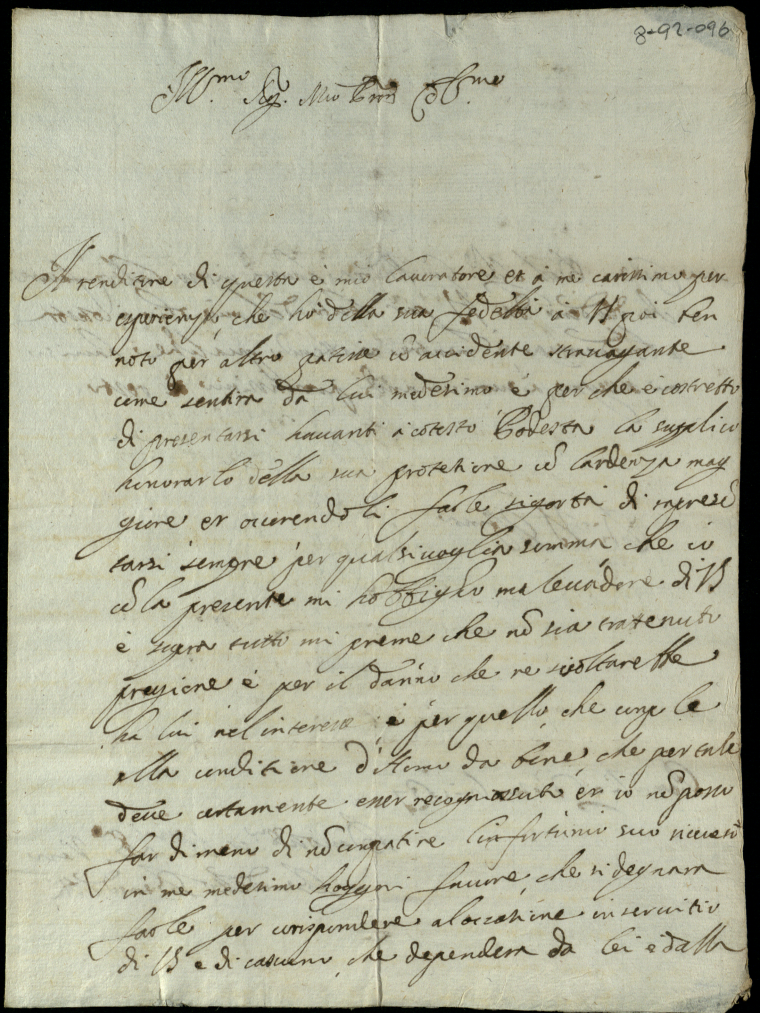 8-92-096
Ill.mo Sig. Mio Pron
renditore di questa è mio lauoratore et à me carissimo per
che hò della sua fedeltà à VS poi ben
noto per altro patire cõ accidente strauagante
come sentira da lui medesimo è perche è costretto
di presentarsi hauanti à cotesto Podesta la supplico
honorarlo della sua protetione cõ lardenza mag
giore et occorendoli farle sigortà di represẽ
tarsi sempre per qualsiuoglia somma che io
cõ la presente mi hobbigho maleuadore di VS
è sopra tutto mi preme che nõ sia tratenuto
pregione è per il danno che ne
ha lui nel interese è per quello che
alla conditione d'Homo da bene che per tale
deue certamente esser et io nõ posso
far di meno di nõ conpatire linfortunio suo
in me medesimo favore che si degnara
farle per corispondere in seruitio
di VS e di che dependera da lei è dalla